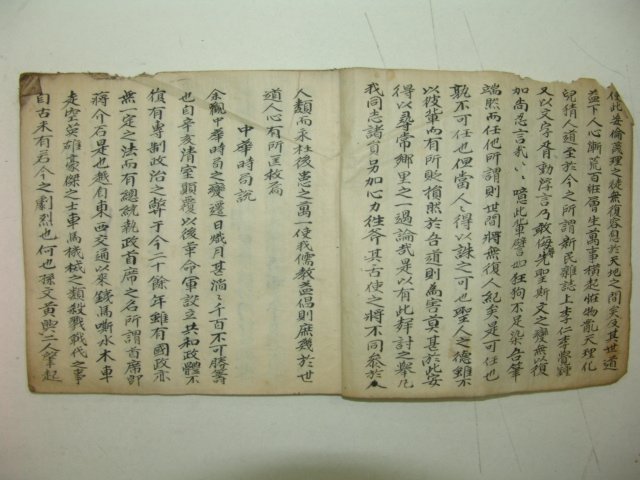 使此妄倫蔑理之徒無復容息於天地之間矣及其世道
益下人心漸荒百怪層生萬事橫起怪物亂天理化
兒猜人道至於今之所謂新民雜誌上李仁李覺鍾
又以文字胥動浮言乃敢侮先聖斯文之變無以復
加尚忍言哉〻〻噫此輩譬如狂狗不足染吾筆
端然而任他所謂則世間將無復人紀矣是可任也
孰不可任也但當人〻得以誅之可也聖人之德雖不
以彼輩而有所貶損然於吾道則為害莫甚於此安
得以尋常鄉里之一過論哉是以有此辭討之舉凡
我同志諸員另加心力往斧其古使之將不同參於人
人類而永杜後患之萬一使我儒敎益倡則庶幾於世
道人心有所匡救焉
中華時局說
余觀中華時局之變遷日熾月甚滔〻千百不可勝筭
也自辛亥清室顚覆以後革命軍設立共和政體不
復有專制政治之弊于今二十餘年雖有國政亦
無一定之法而有總統執政首席之名所謂首席卽
蔣介石是也越自東西交通以來錢馬嘶水木車
走空英雄豪傑之士車馬機械之類殺戮戰伐之事
自古未有若今之劇烈也何也孫文黃興二人肇起